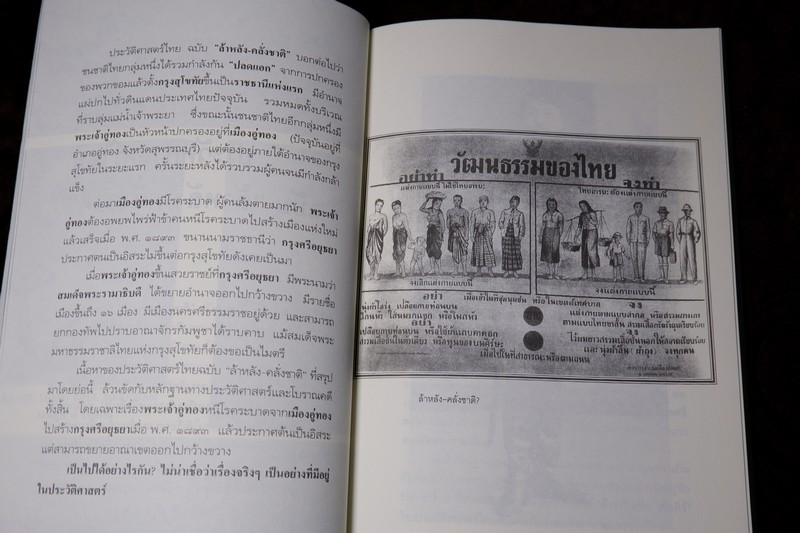 ประวัติศาสตร์ไทย ฉบับ "ล้าหลัง-คลั่งชาติ" บอกต่อไปว่า
ชนชาติไทยกลุ่มหนึ่งได้รวมกำลังกัน "ปลดแอก" จากการปกครอง
ของพวกขอมแล้วตั้งกรุงสุโขทัยขึ้นเป็นราชธานีแห่งแรก มีอำนาจ
แผ่ปกไปทั่วดินแดนประเทศไทยปัจจุบัน รวมหมดทั้งบริเวณ
ที่ราบลุ่มแม่น้ำเจ้าพระยา ซึ่งขณะนั้นชนชาติไทยอีกกลุ่มหนึ่งมี
พระเจ้าอู่ทองเป็นหัวหน้าปกครองอยู่ที่เมืองอู่ทอง (ปัจจุบันอยู่ที่
อำเภออู่ทอง จังหวัดสุพรรณบุรี) แต่ต้องอยู่ภายใต้อำนาจของกรุง
สุโขทัยในระยะแรก ครั้นระยะหลังได้รวบรวมผู้คนจนมีกำลังกล้า
แข็ง
ต่อมาเมืองอู่ทองมีโรคระบาด ผู้คนล้มตายมากนัก พระเจ้า
อู่ทองต้องอพยพไพร่ฟ้าข้าคนหนีโรคระบาดไปสร้างเมืองแห่งใหม่
แล้วเสร็จเมื่อ พ.ศ. ๑๘๙๓ ขนานนามราชธานีว่า กรุงศรีอยุธยา
ประกาศตนเป็นอิสระไม่ขึ้นต่อกรุงสุโขทัยดังเคยเป็นมา
เมื่อพระเจ้าอู่ทองขึ้นเสวยราชย์ที่กรุงศรีอยุธยา มีพระนามว่า
สมเด็จพระรามาธิบดี ได้ขยายอำนาจออกไปกว้างขวาง มีรายชื่อ
เมืองขึ้นถึง ๑๖ เมือง มีเมืองนครศรีธรรมราชอยู่ด้วย และสามารถ
ยกกองทัพไปราบอาณาจักรกัมพูชาได้ราบคาบ แม้สมเด็จพระ
มหาธรรมราชาลิไทยแห่งกรุงสุโขทัยก็ต้องขอเป็นไมตรี
เนื้อหาของประวัติศาสตร์ไทยฉบับ "ล้าหลัง-คลั่งชาติ" ที่สรุป
มาโดยย่อนี้ ล้วนขัดกับหลักฐานทางประวัติศาสตร์และโบราณคดี
ทั้งสิ้น โดยเฉพาะเรื่องพระเจ้าอู่ทองหนีโรคระบาดจากเมืองอู่ทอง
ไปสร้างกรุงศรีอยุธยาเมื่อ พ.ศ. ๑๘๙๓ แล้วประกาศตนเป็นอิสระ
แต่สามารถขยายอาณาเขตออกไปกว้างขวาง
เป็นไปได้อย่างไรกัน? ไม่น่าเชื่อว่าเรื่องจริงๆ เป็นอย่างที่มีอยู่
ในประวัติศาสตร์
วัฒนธรรมของไทย
อย่าทำ
จงทำ
แต่งกายแบบนี้ ไม่ใช่ไทยอารยะ
ไทยอารยะ ต้องแต่งกายแบบนี้
จงเลิกแต่งกายแบบนี้
จงแต่งกายแบบนี้
อย่า
เมื่อเข้าในที่ชุมนุมชน หรือในเขตเทศบาล
จง
เปลือยกายท่อนบน
แต่งกายแบบสากล
อย่า
จง
เมื่อไปในที่สาธารณะ
ล้าหลัง-คลั่งชาติ?